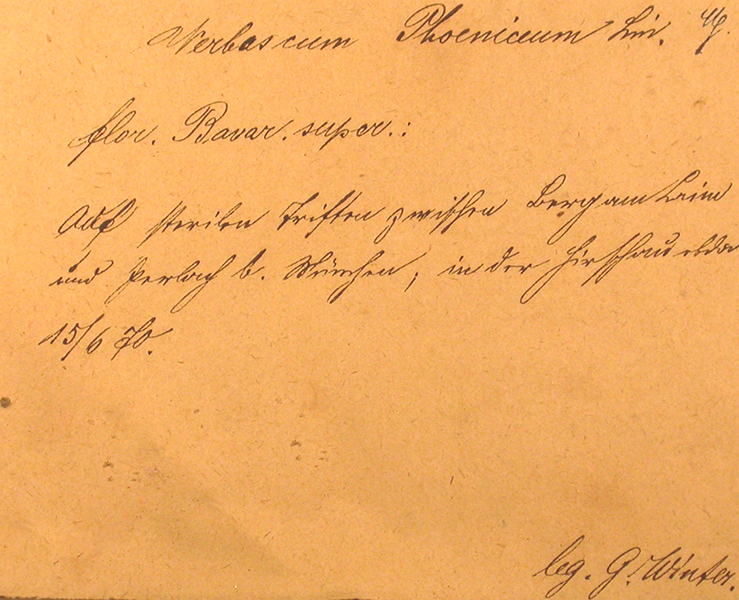 Verbascum Phoeniceum Lin.
flor. Bavar. super.:
Auf sterilen Triften zwischen Berg am Laim
und Perlach b. München, in der Hirschau ebda
15/6 70.
leg. G. Winter.